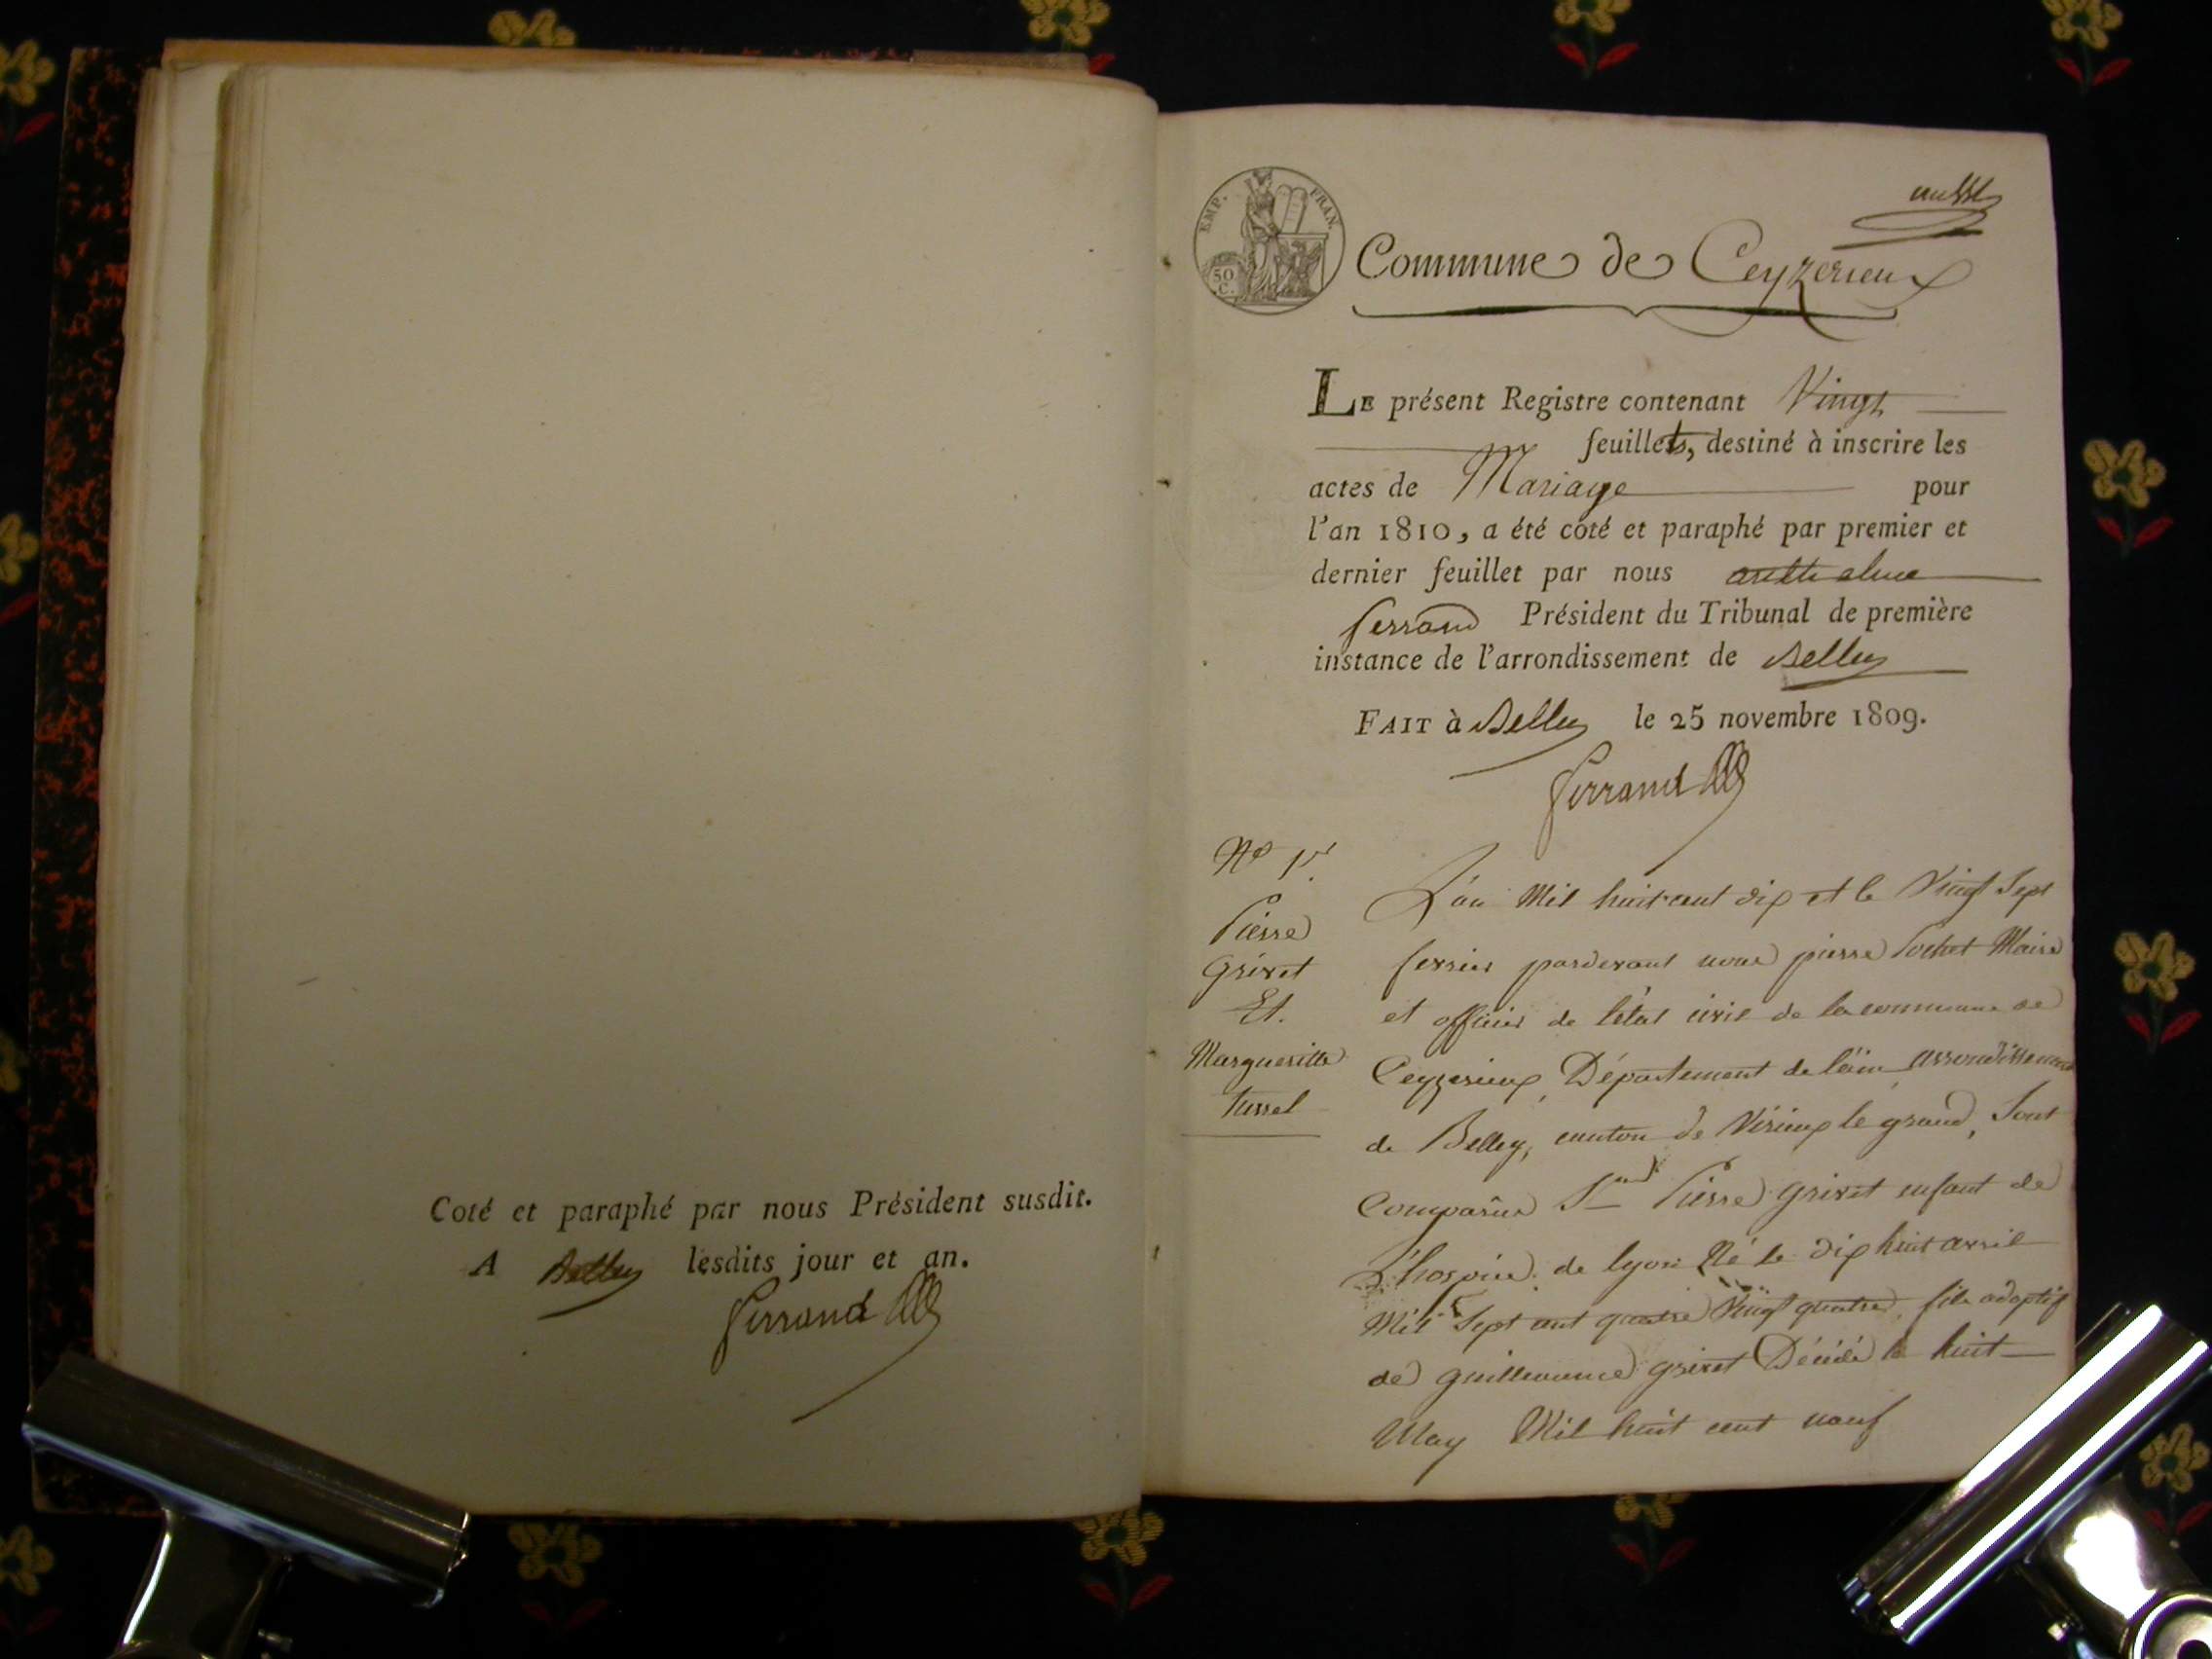 Coté et paraphé par nous Président susdit.
A Belley lesdits jour et an.
Ferrand
EMP. FRAN.
50 C.
Commune de Ceyzerieux
LE présent Registre contenant Vingt
feuillets, destiné à inscrire les
actes de Mariage pour
l'an 1810, a été coté et paraphé par premier et
dernier feuillet par nous
ferrand Président du Tribunal de première
instance de l'arrondissement de Belley
FAIT à Belley le 25 novembre 1809.
Ferrand
No 1er.
Pierre
Grivet
Et.
Margueritte
Turrel
L'an Mil huit cent dix et le Vingt Sept
fevrier pardevant nous pierre Pochet Maire
et officier de l'état civil de la commune de
Ceyzerieux, Département de l'ain arrondissement
de Belley, canton de Virieux le grand, Sont
Comparûs Pierre grivet enfant de
L'hospice de lyon Né le dix huit avril
Mil Sept cent quatre Vingt quatre, fils adoptif
de guilleaume grivet Décédé le huit
May Mil huit cent neuf